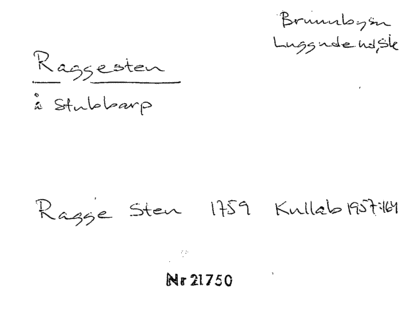 Brunnbysn
Luggude hd, Sk
Raggesten
å Stubbarp
Ragge Sten 1759 Kullab 1957:164
Nr 21750